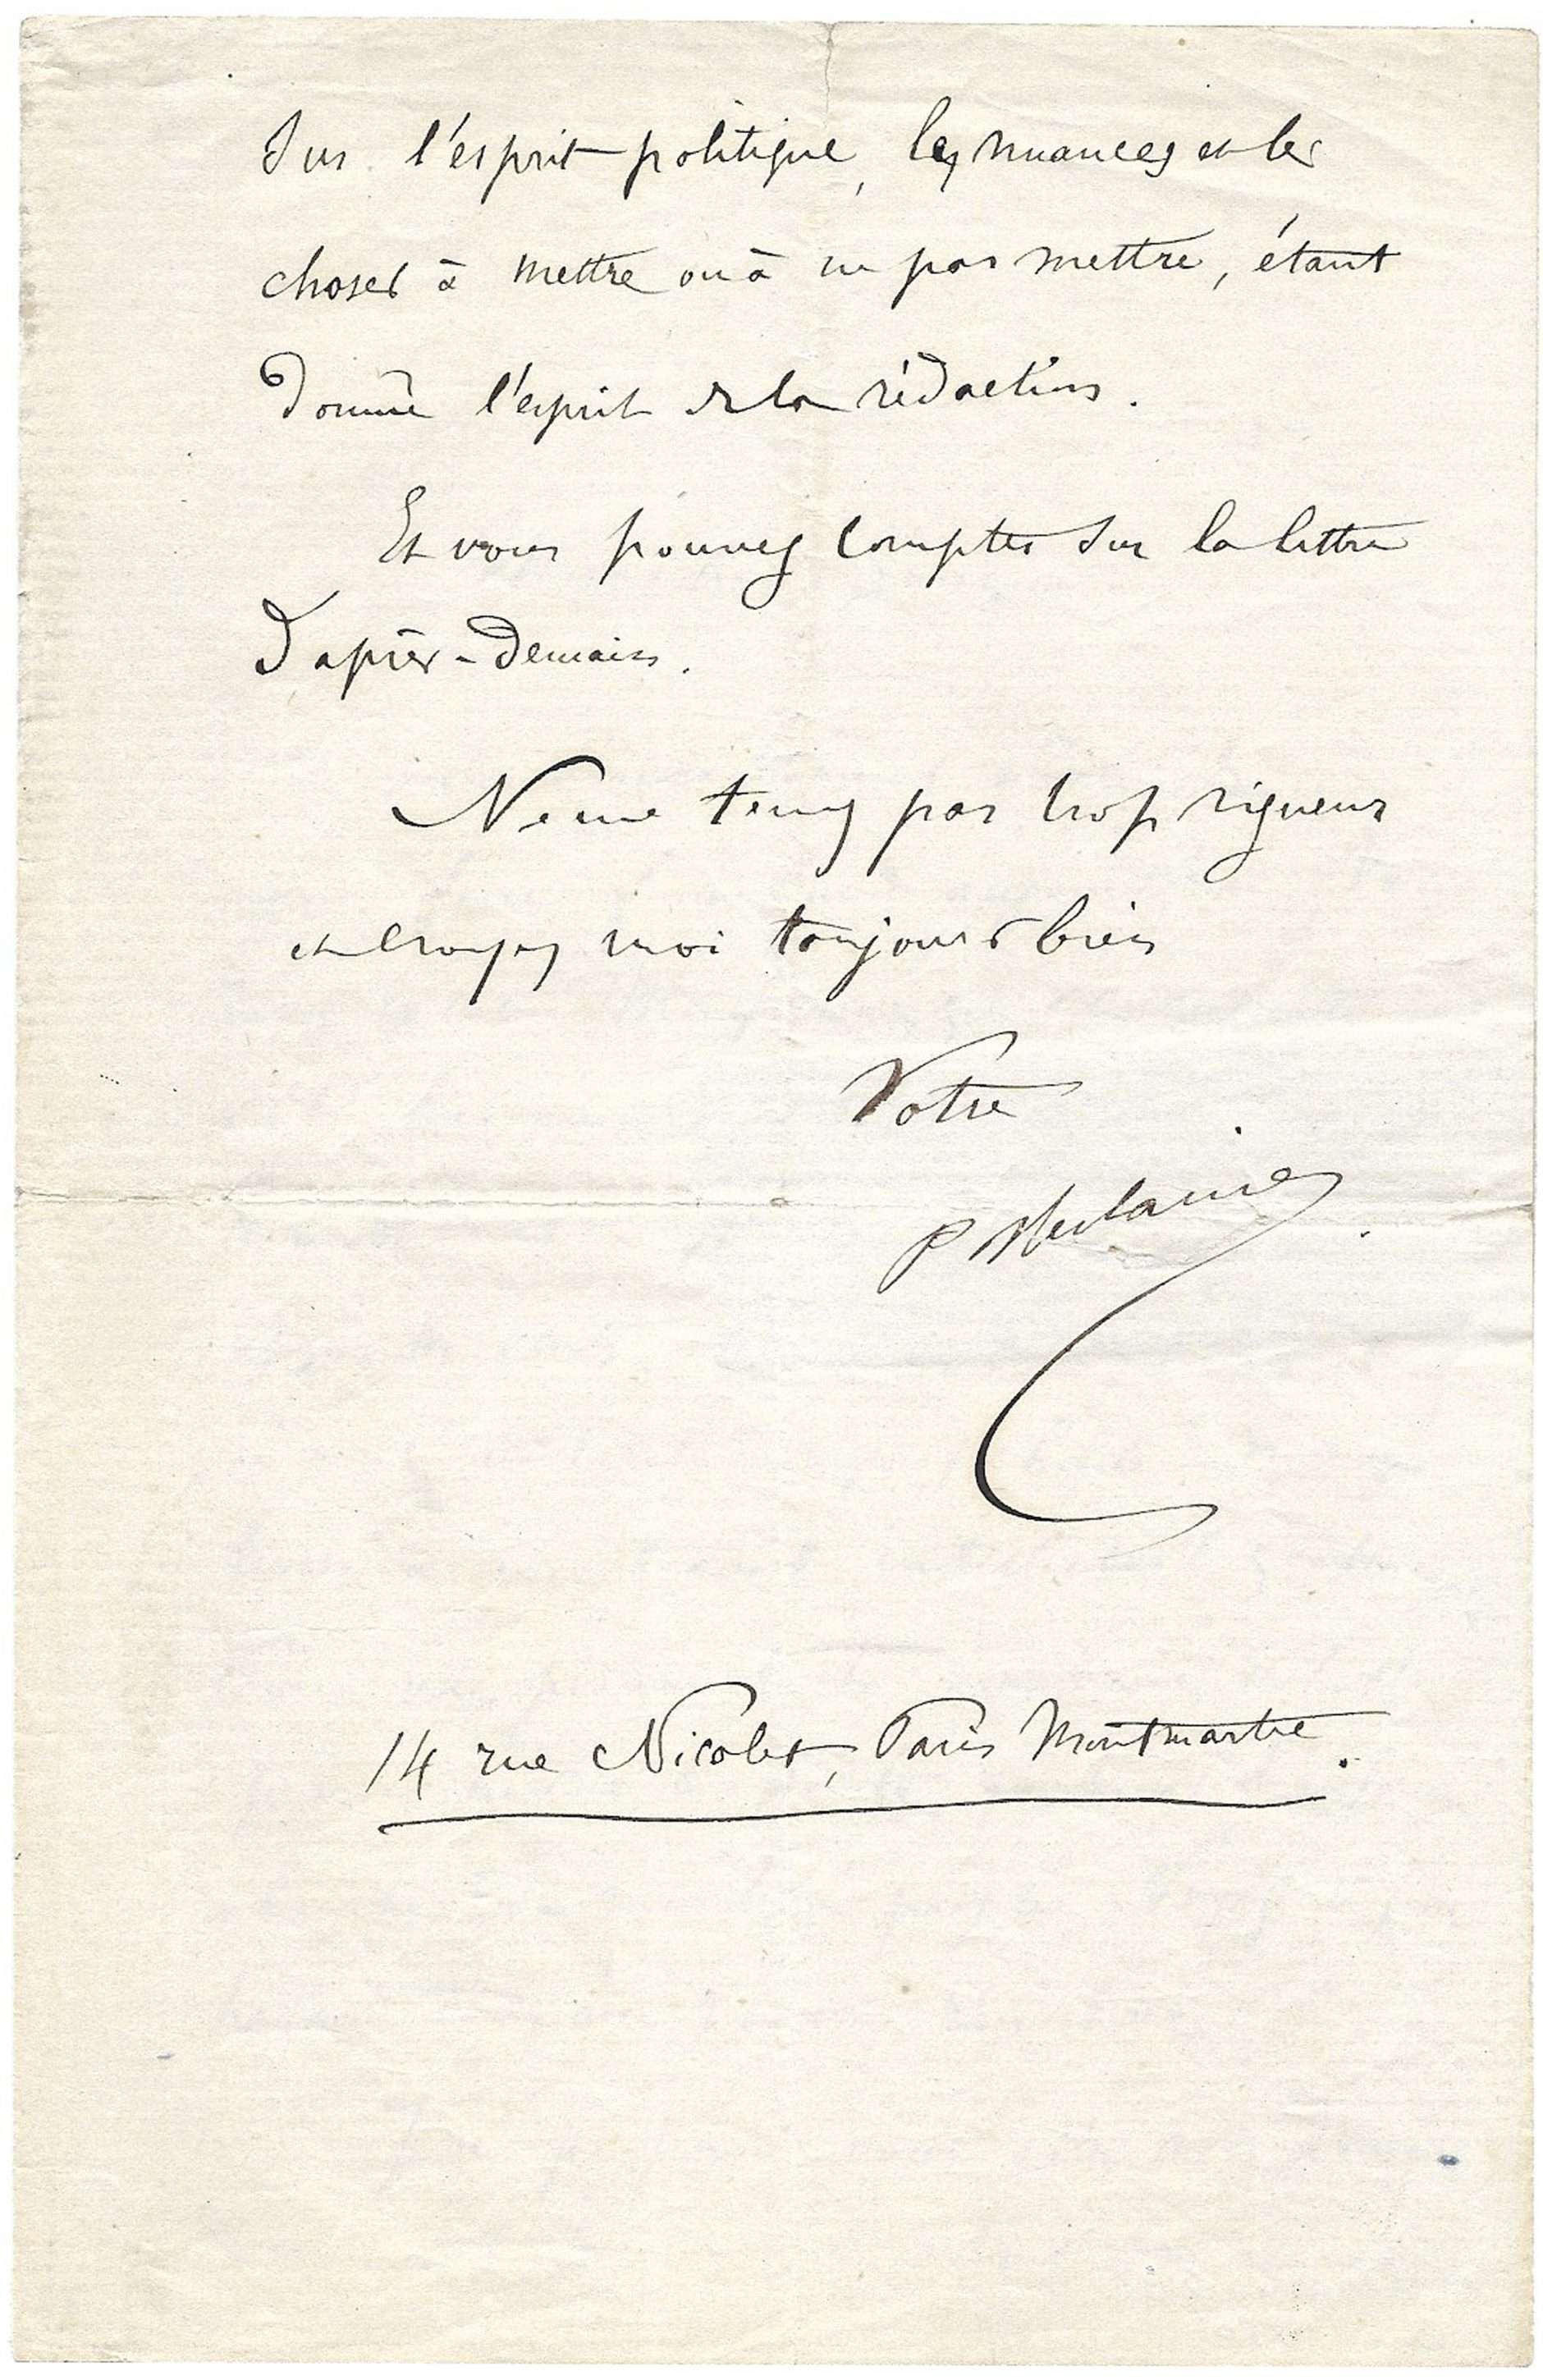 Sur l'esprit politique, les nuances et les
choses à mettre ou à ne pas mettre, étant
donné l'esprit de la rédaction.
Et vous pouvez compter sur la lettre
d'après-demain.
Ne me tenez pas trop rigueur
et croyez moi toujours bien
Votre
P Verlaine
14 rue Nicolet, Paris Montmartre.